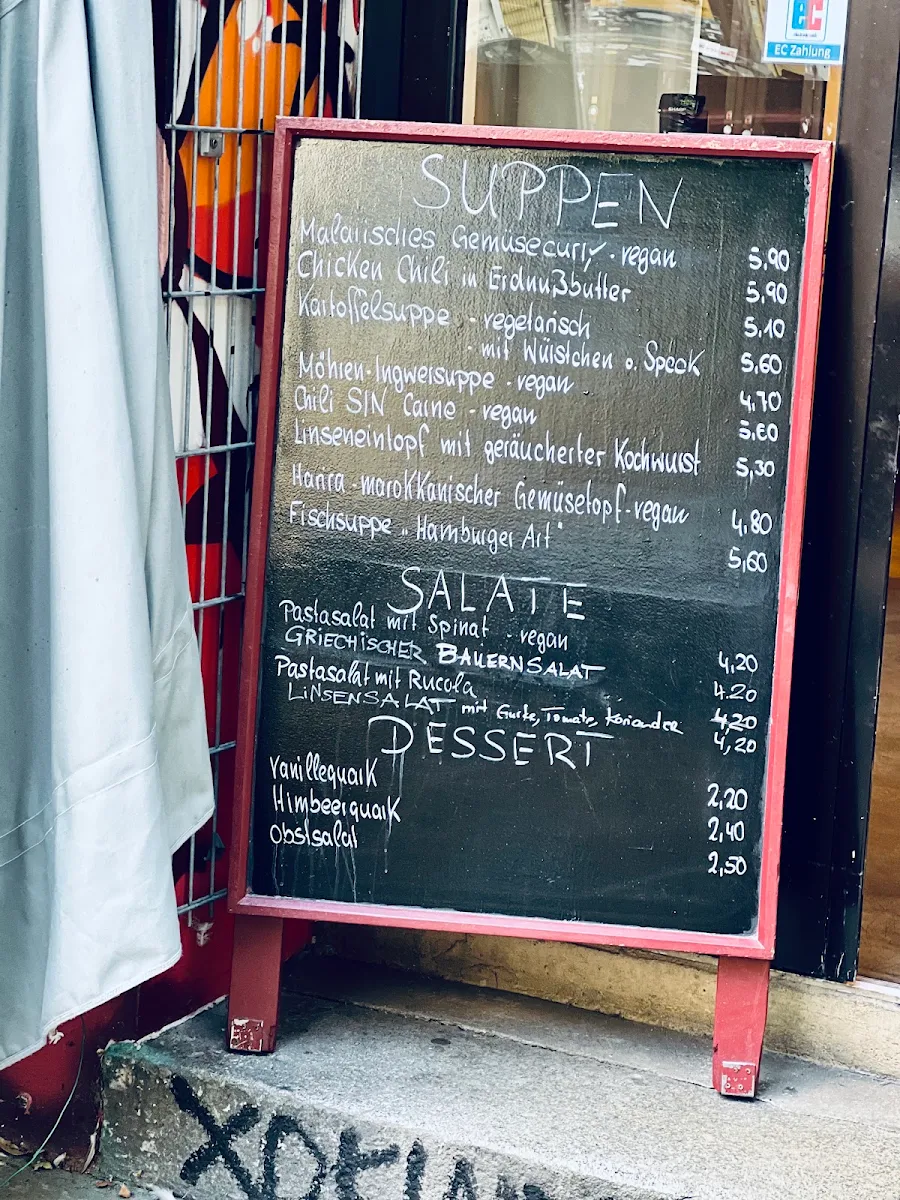 EC
EC Zahlung
SUPPEN
Malaiisches Gemüsecurry - vegan 5,90
Chicken Chili in Erdnußbutter 5,90
Kartoffelsuppe - vegetarisch 5,10
- mit Würstchen o. Speck 5,60
Möhren-Ingwersuppe - vegan 4,70
Chili SIN Carne - vegan 5,60
Linseneintopf mit geräucherter Kochwurst 5,30
Harira - marokkanischer Gemüsetopf - vegan 4,80
Fischsuppe „Hamburger Art" 5,60
SALATE
Pastasalat mit Spinat - vegan 4,20
GRIECHISCHER BAUERNSALAT 4.20
Pastasalat mit Rucola 4,20
LINSENSALAT mit Gurke, Tomate, Koriander 4,20
DESSERT
Vanillequark 2,20
Himbeerquark 2,40
Obstsalat 2,50